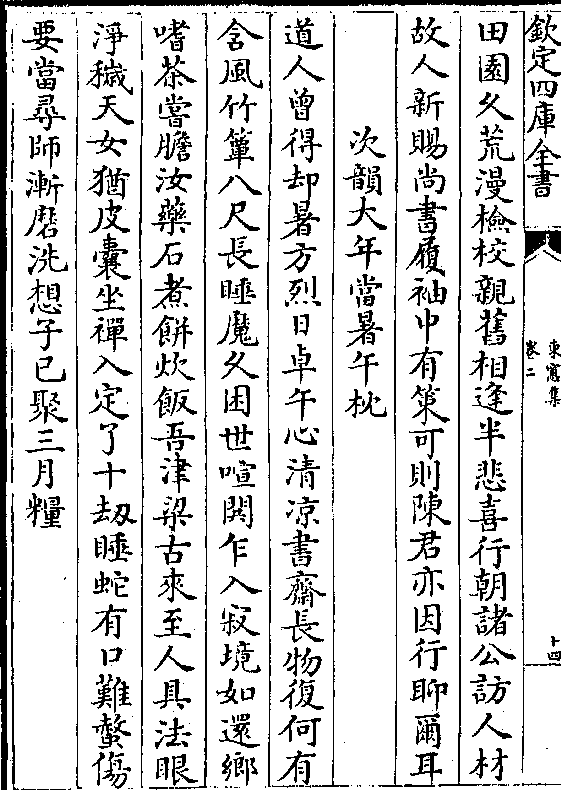 欽定四庫全書
東窻集
卷二
十四
田園久荒漫檢校親舊相逢半悲喜行朝諸公訪人材
故人新賜尚書履袖中有策可則陳君亦因行聊爾耳
次韻大年當暑午枕
道人曾得却暑方烈日卓午心清凉書齋長物復何有
含風竹簟八尺長睡魔久困世喧鬨乍入寂境如還鄉
嗜茶嘗膽汝藥石煮餅炊飯吾津梁古來至人具法眼
淨穢天女猶皮囊坐禪入定了十刼睡蛇有口難螫傷
要當尋師漸磨洗想子已聚三月糧